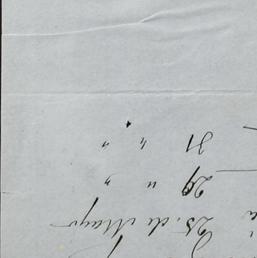 25. de Mayo
29 " "
31 " "